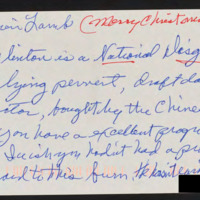 Lamb (Merry Christmas
linton is a National Disg
lying pervert, draft do
tor, bought by the Chine
you have a excellent progra
I wish you had
to this bum